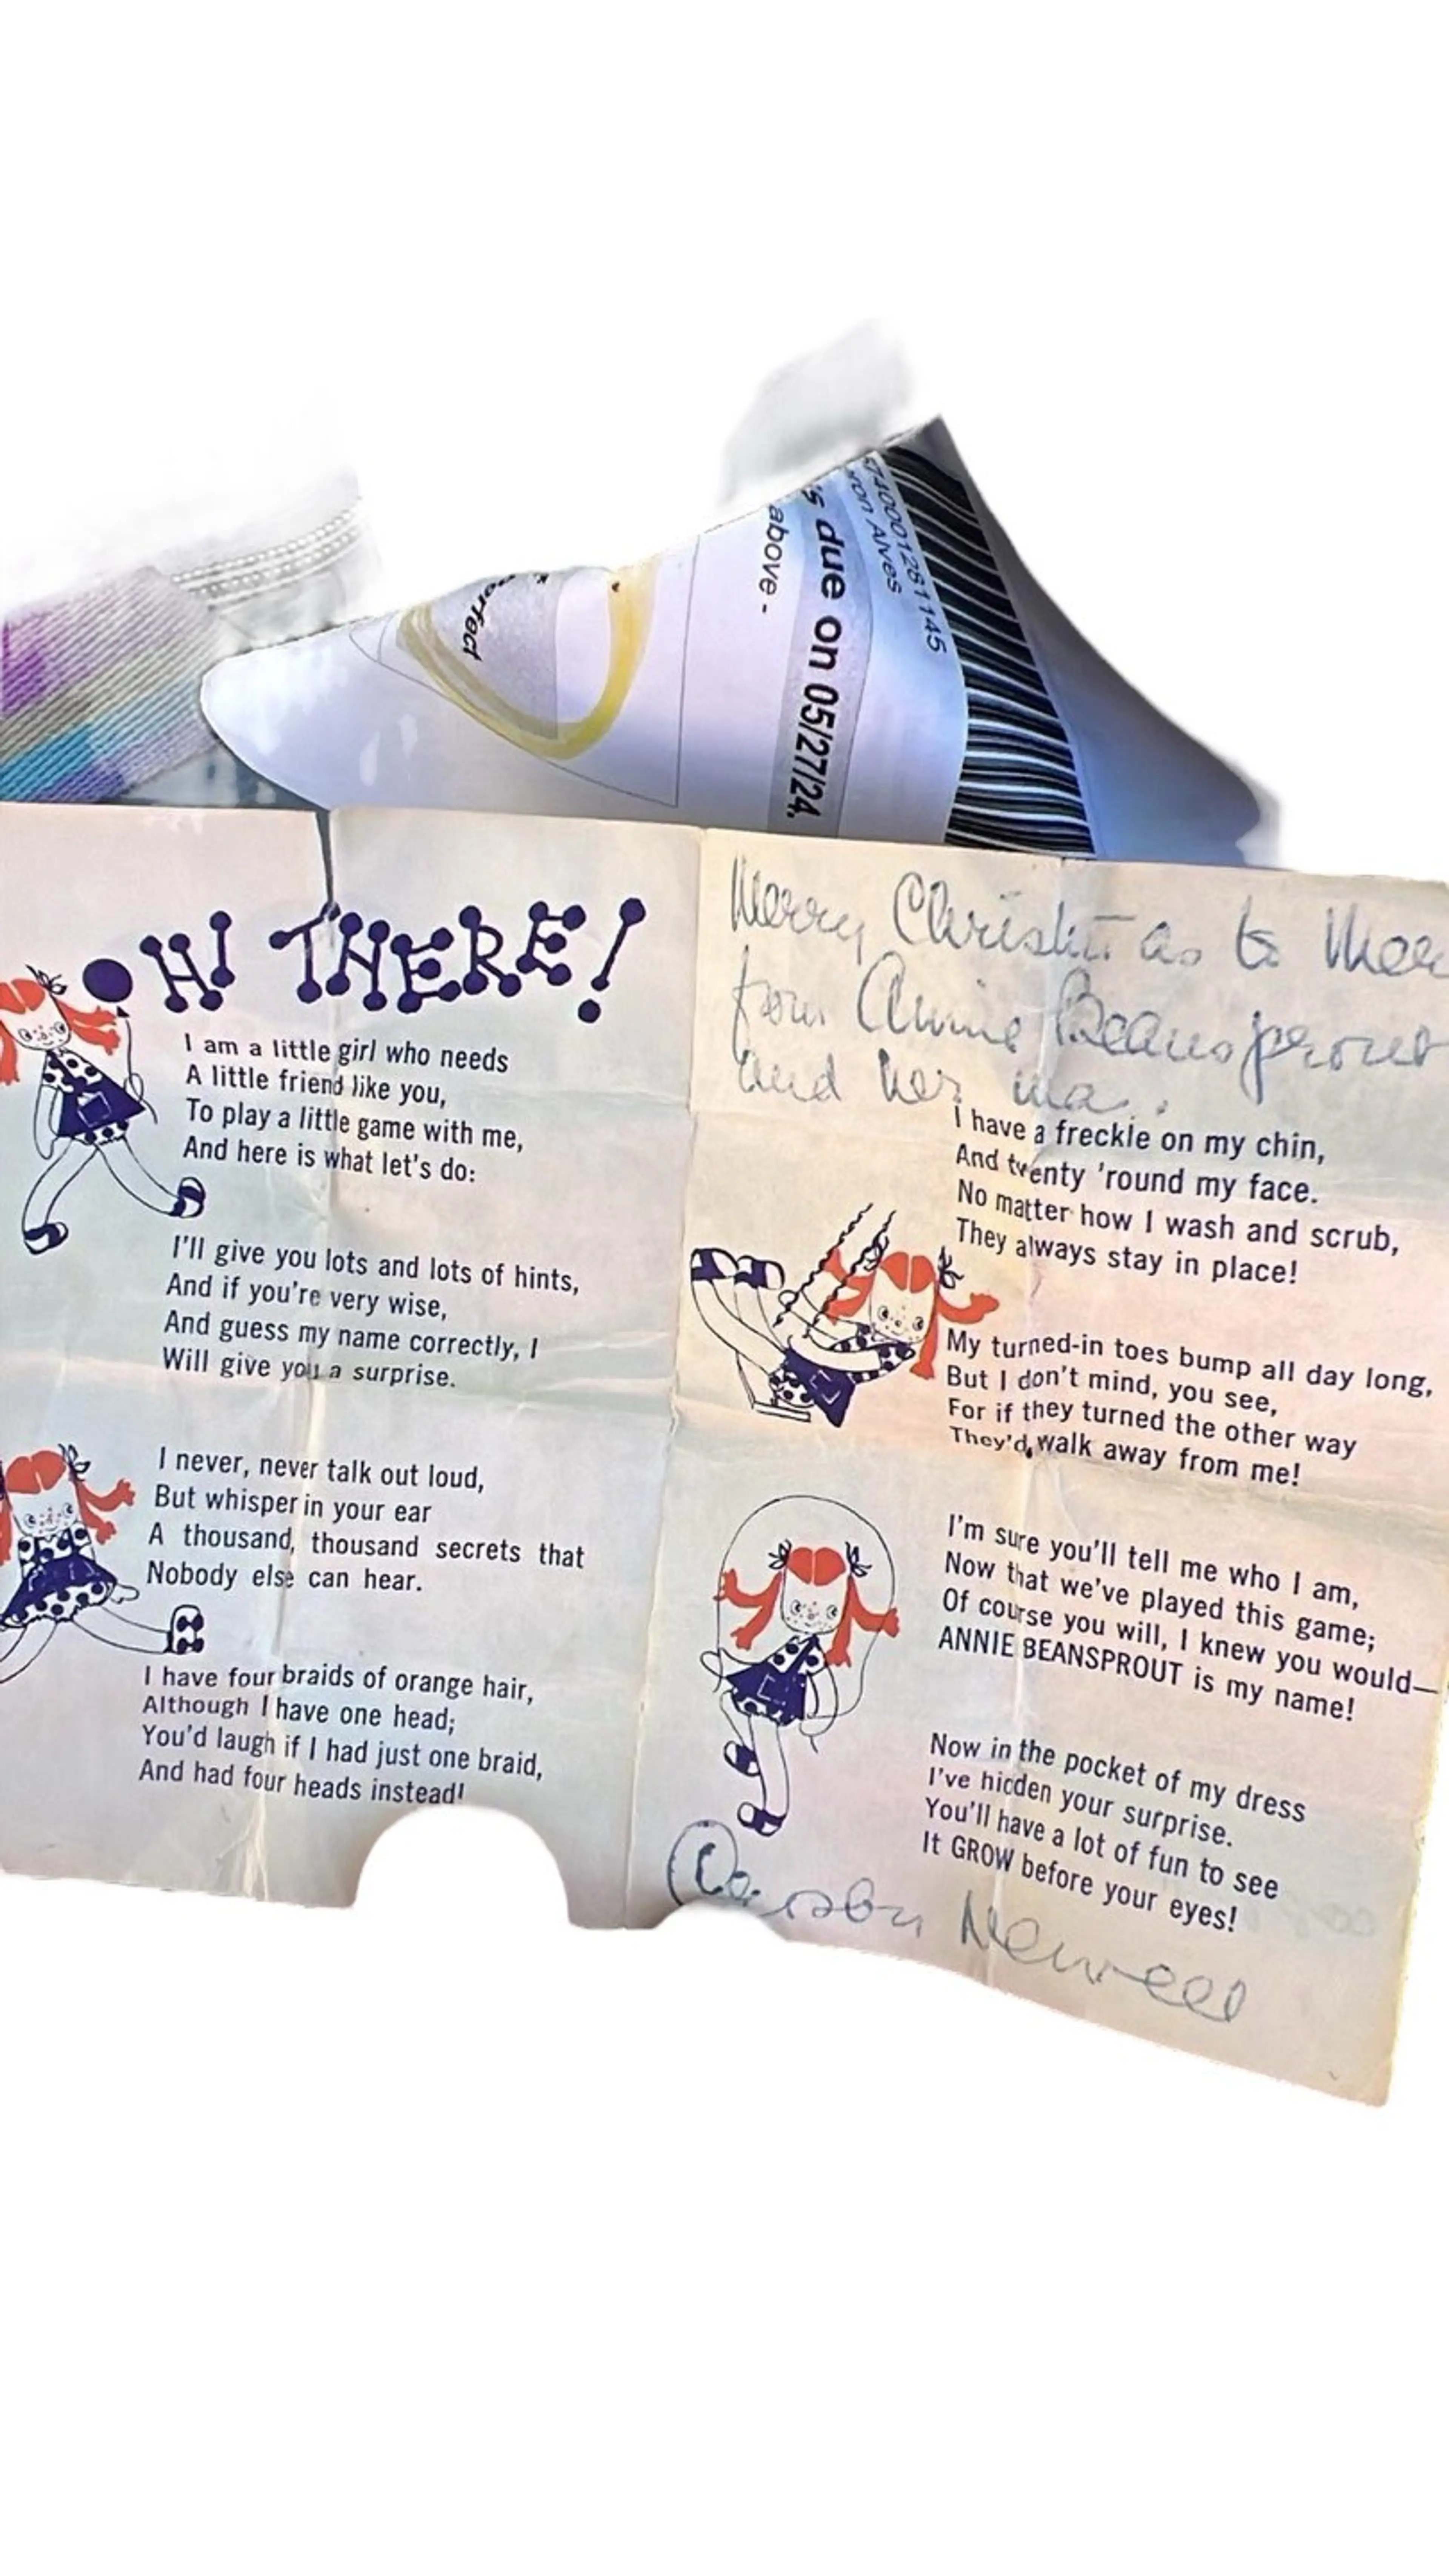 erfect
above -
s due on 05/27/24.
ron Alves
5740001281145
HI THERE!
I am a little girl who needs
A little friend like you,
To play a little game with me,
And here is what let's do:
I'll give you lots and lots of hints,
And if you're very wise,
And guess my name correctly, I
Will give you a surprise.
I never, never talk out loud,
But whisper in your ear
A thousand, thousand secrets that
Nobody else can hear.
I have four braids of orange hair,
Although I have one head;
You'd laugh if I had just one braid,
And had four heads instead!
Merry Christmas to
from Annie Beansprout
and her ma.
I have a freckle on my chin,
And twenty 'round my face.
No matter how I wash and scrub,
They always stay in place!
My turned-in toes bump all day long,
But I don't mind, you see,
For if they turned the other way
They'd walk away from me!
I'm sure you'll tell me who I am,
Now that we've played this game;
Of course you will, I knew you would—
ANNIE BEANSPROUT is my name!
Now in the pocket of my dress
I've hidden your surprise.
You'll have a lot of fun to see
It GROW before your eyes!
Newell